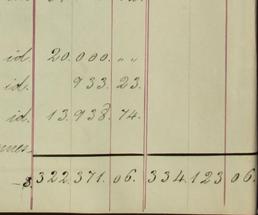 id. 20.000. " "
id. 933. 23.
id. 13.938. 74.
-8. 322.371. 06. 334.123 06.